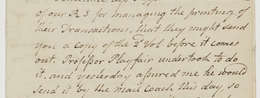 of our R S for managing the printing of
their Transactions, that they might send
you a copy of the 2ᵈ Vol before it comes
out. Professor Playfair undertook to do
it, and yesterday assured me he would
send it by the mail coach this day, so